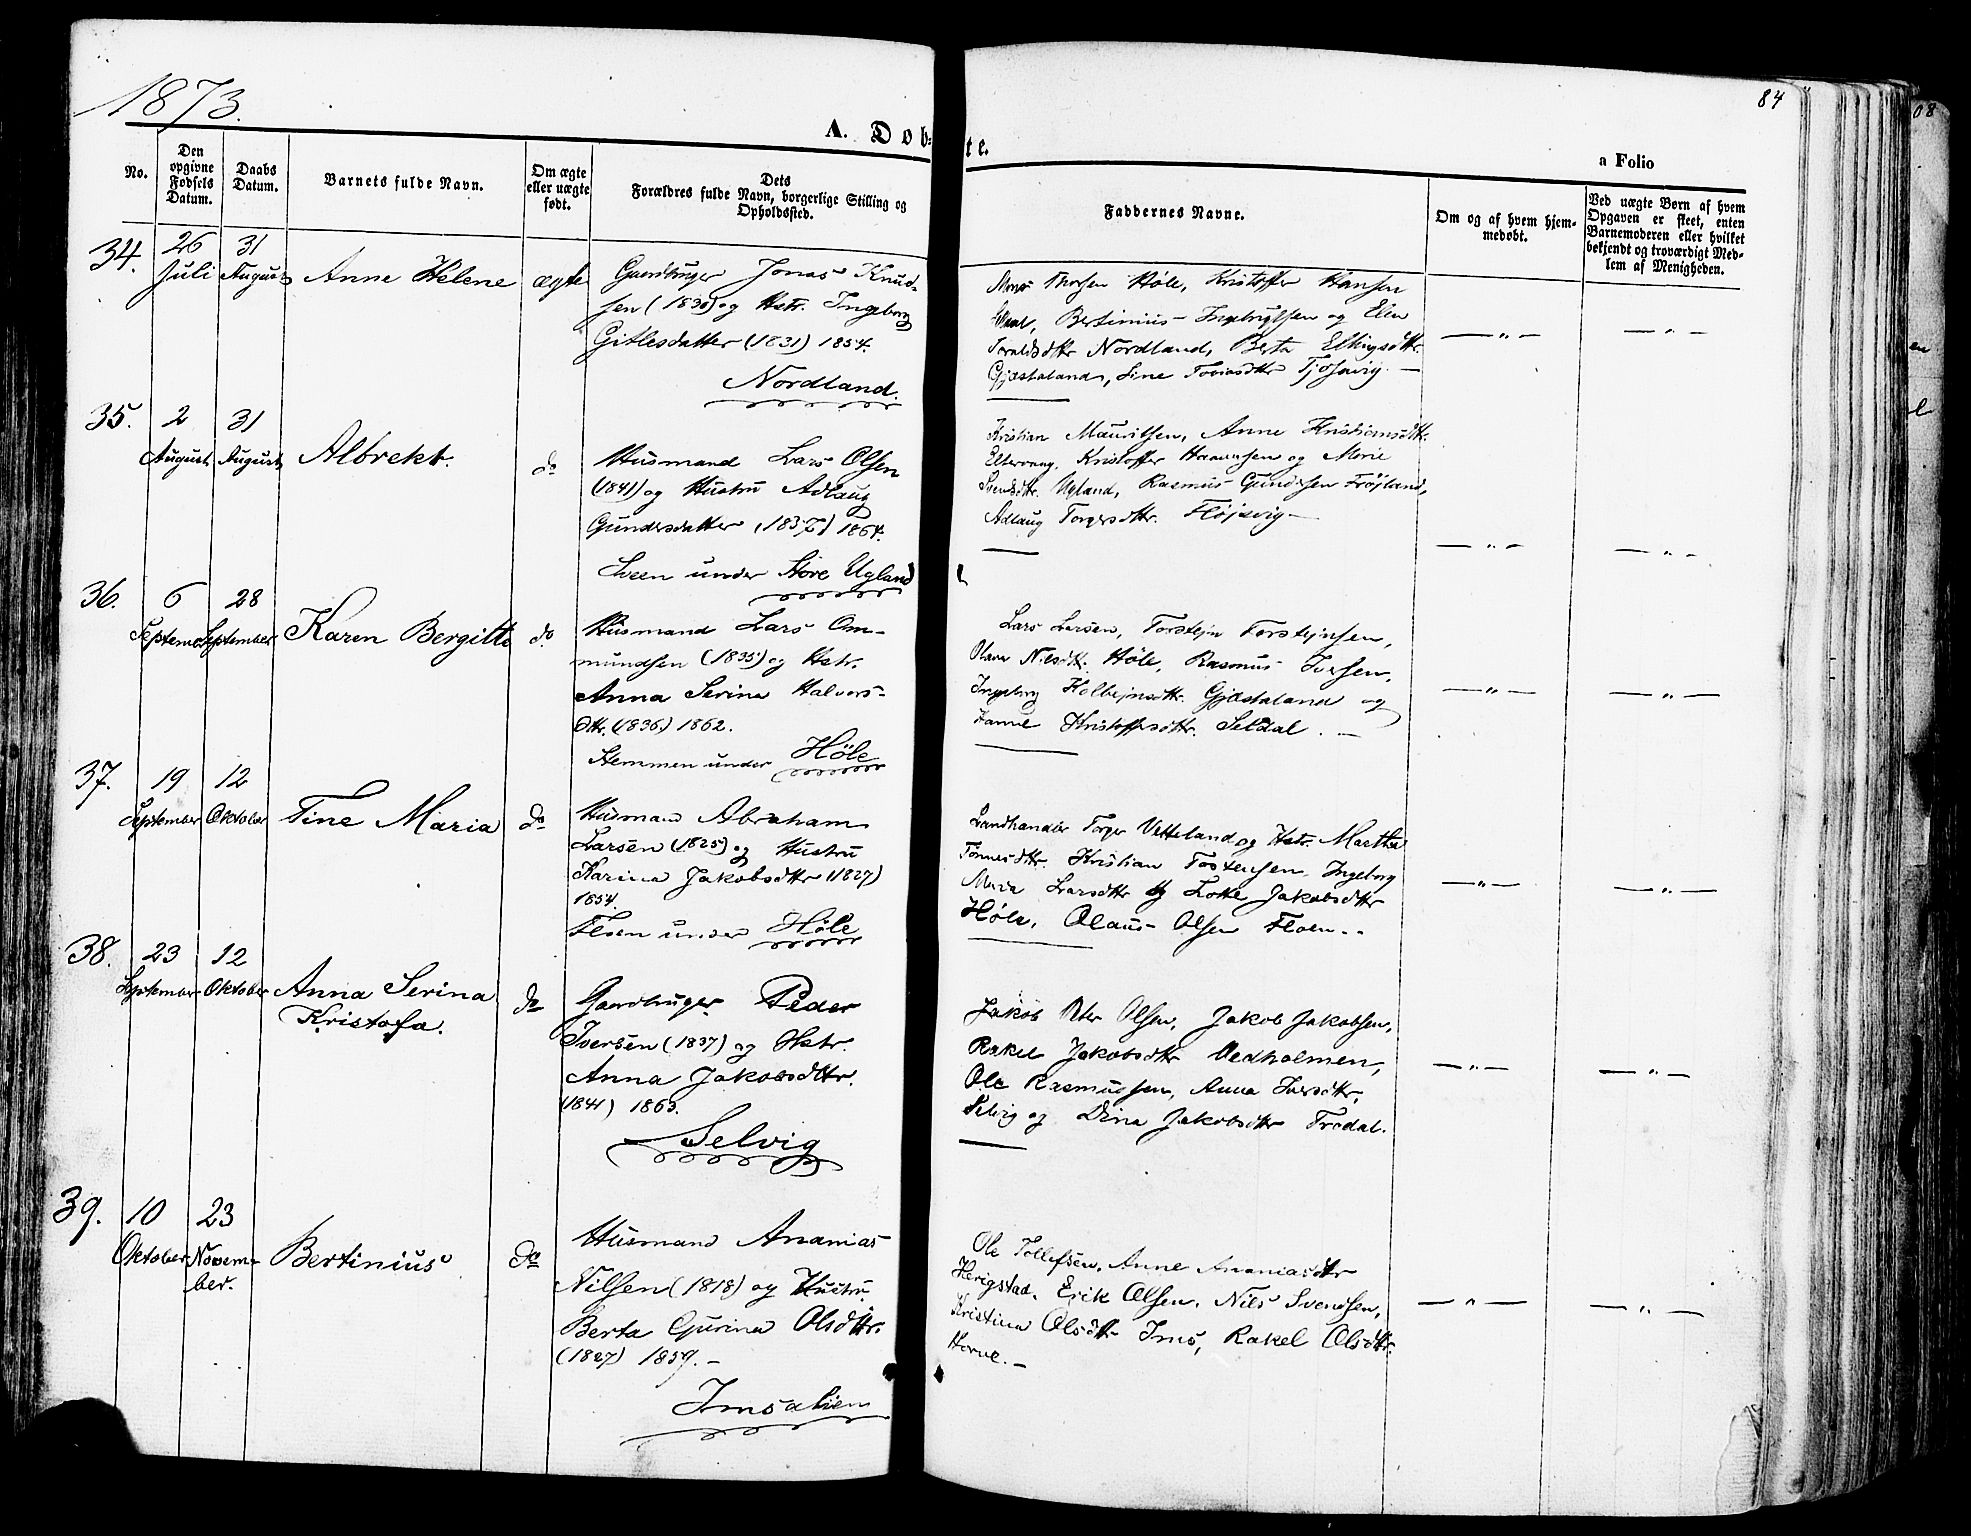 1873.
84
08
A. Døb-
te.
a Folio
No.
Den opgivne Fødsels Datum.
Daabs Datum.
Barnets fulde Navn.
Om ægte eller uægte født.
Dets Forældres fulde Navn, borgerlige Stilling og Opholdssted.
Faddernes Navne.
Om og af hvem hjemmedøbt.
Ved uægte Børn af hvem Opgaven er skeet, enten Barnemoderen eller hvilket bekjendt og troværdigt Medlem af Menigheden.
34.
26 Juli
31 August
Anne Helene
ægte
Gaardbruger Jonas Knud-
sen (1830) og Hstr. Ingeborg
Gitlesdatter (1831) 1854.
Nordland.
Thorsen Høle, Kristoffer Hansen
Bertinius Ingebrigtsen og Elen
Toraldsdttr Nordland, Berta Ellingsdttr.
Gjøstaland, Sine Tobiasdttr Tjøsvig. —
— " —
— " —
35.
2 August
31 August
Albrekt.
do
Husmand Lars Olsen
(1841) og Hustru Adlaug
Gundersdatter (1837) 1864.
Sveen under Store Ugland
Kristian Mauritsen, Anne Kristiansdttr.
Eltervaag, Kristoffer Hansen og Marie
Svendsdttr. Ugland, Rasmus Gundersen Frøjland,
Adlaug Torgersdttr. Fløjsvig —
— " —
— " —
36.
6 September
28 September
Karen Bergitte
do
Husmand Lars Om-
mundsen (1835) og Hstr.
Anna Serina Halvors-
dttr. (1836) 1862.
Stemmen under Høle
Lars Larsen, Torstejn Torstejnsen,
Nilsdtt. Høle, Rasmus Iversen,
Ingeborg Holbejnsdttr. Gjøstaland og
Kristoffersdttr. Seldal. —
— " —
— " —
37.
19 September
12 Oktober
Tine Maria
do
Husmand Abraham
Larsen (1825) og Hustru
Karina Jakobsdttr (1827)
1854.
Floen under Høle
Landhandler Torger Vetteland og Hstr. Martha
Tønnesdttr. Kristian Tostensen, Ingeborg
Maria Larsdttr og Lotte Jakobsdttr
Høle, Olaus Olsen Floen. -
— " —
— " —
38.
23 September
12 Oktober
Anna Serina
Kristofa.
do
Gaardbruger Peder
Iversen (1837) og Hstr.
Anna Jakobsdttr.
(1841) 1863.
Selvig
Jakob Peter Olsen, Jakob Jakobsen,
Rakel Jakobsdttr Vedholmen,
Ole Rasmussen, Anna Iversdttr.
Selvig og Dina Jakobsdttr Frodal.
— " —
— " —
39.
10 Oktober
23 Novem-
ber.
Bertinius
do
Husmand Ananias
Nilsen (1818) og Hustru
Berta Gurina Olsdttr.
(1827) 1859. —
Imsalien
Ole Tollefsen, Anne Ananiasdttr
Herigstad, Erik Olsen, Nils Svendsen,
Kristina Olsdtt Ims, Rakel Olsdttr.
Horve. —
— " —
— " —